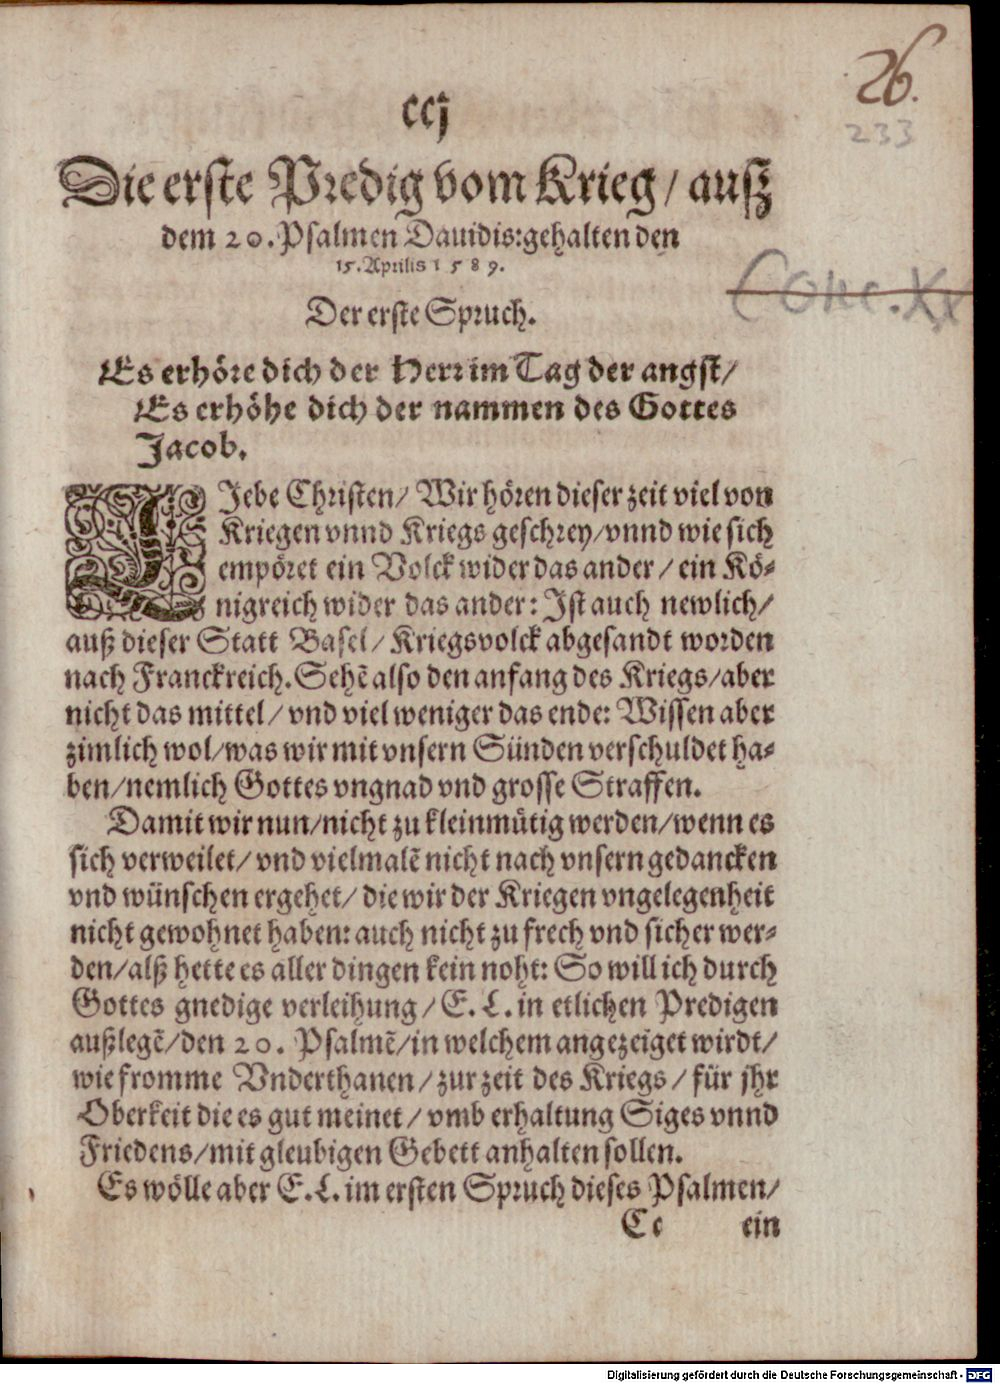 26.
233
ccj
Die erste Predig vom Krieg / ausz
dem 20. Psalmen Dauidis: gehalten den
15. Aprilis 1589.
Conc. XX
Der erste Spruch.
Es erhöre dich der Herr im Tag der angst/
Es erhöhe dich der nammen des Gottes
Jacob.
LJebe Christen/ Wir hören dieser zeit viel von
Kriegen vnnd Kriegs geschrey/vnnd wie sich
empöret ein Volck wider das ander / ein Kö-
nigreich wider das ander: Ist auch newlich/
auß dieser Statt Basel/ Kriegsvolck abgesandt worden
nach Franckreich. Sehẽ also den anfang des Kriegs/aber
nicht das mittel/ vnd viel weniger das ende: Wissen aber
zimlich wol/was wir mit vnsern Sünden verschuldet ha-
ben/nemlich Gottes vngnad vnd grosse Straffen.
Damit wir nun/nicht zu kleinmütig werden/wenn es
sich verweilet/ vnd vielmalẽ nicht nach vnsern gedancken
vnd wünschen ergehet/ die wir der Kriegen vngelegenheit
nicht gewohnet haben: auch nicht zu frech vnd sicher wer-
den/alß hette es aller dingen kein noht: So will ich durch
Gottes gnedige verleihung/ E. L. in etlichen Predigen
außlegẽ/den 20. Psalmẽ/in welchem angezeiget wirdt/
wie fromme Vnderthanen/ zur zeit des Kriegs / für jhr
Oberkeit die es gut meinet/ vmb erhaltung Siges vnnd
Friedens/mit gleubigen Gebett anhalten sollen.
Es wölle aber E. L. im ersten Spruch dieses Psalmen/
Cc ein
Digitalisierung gefördert durch die Deutsche Forschungsgemeinschaft - DFG